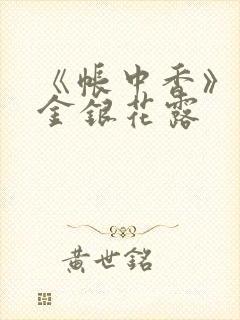 《帳中香》
金銀花露
黄世銘